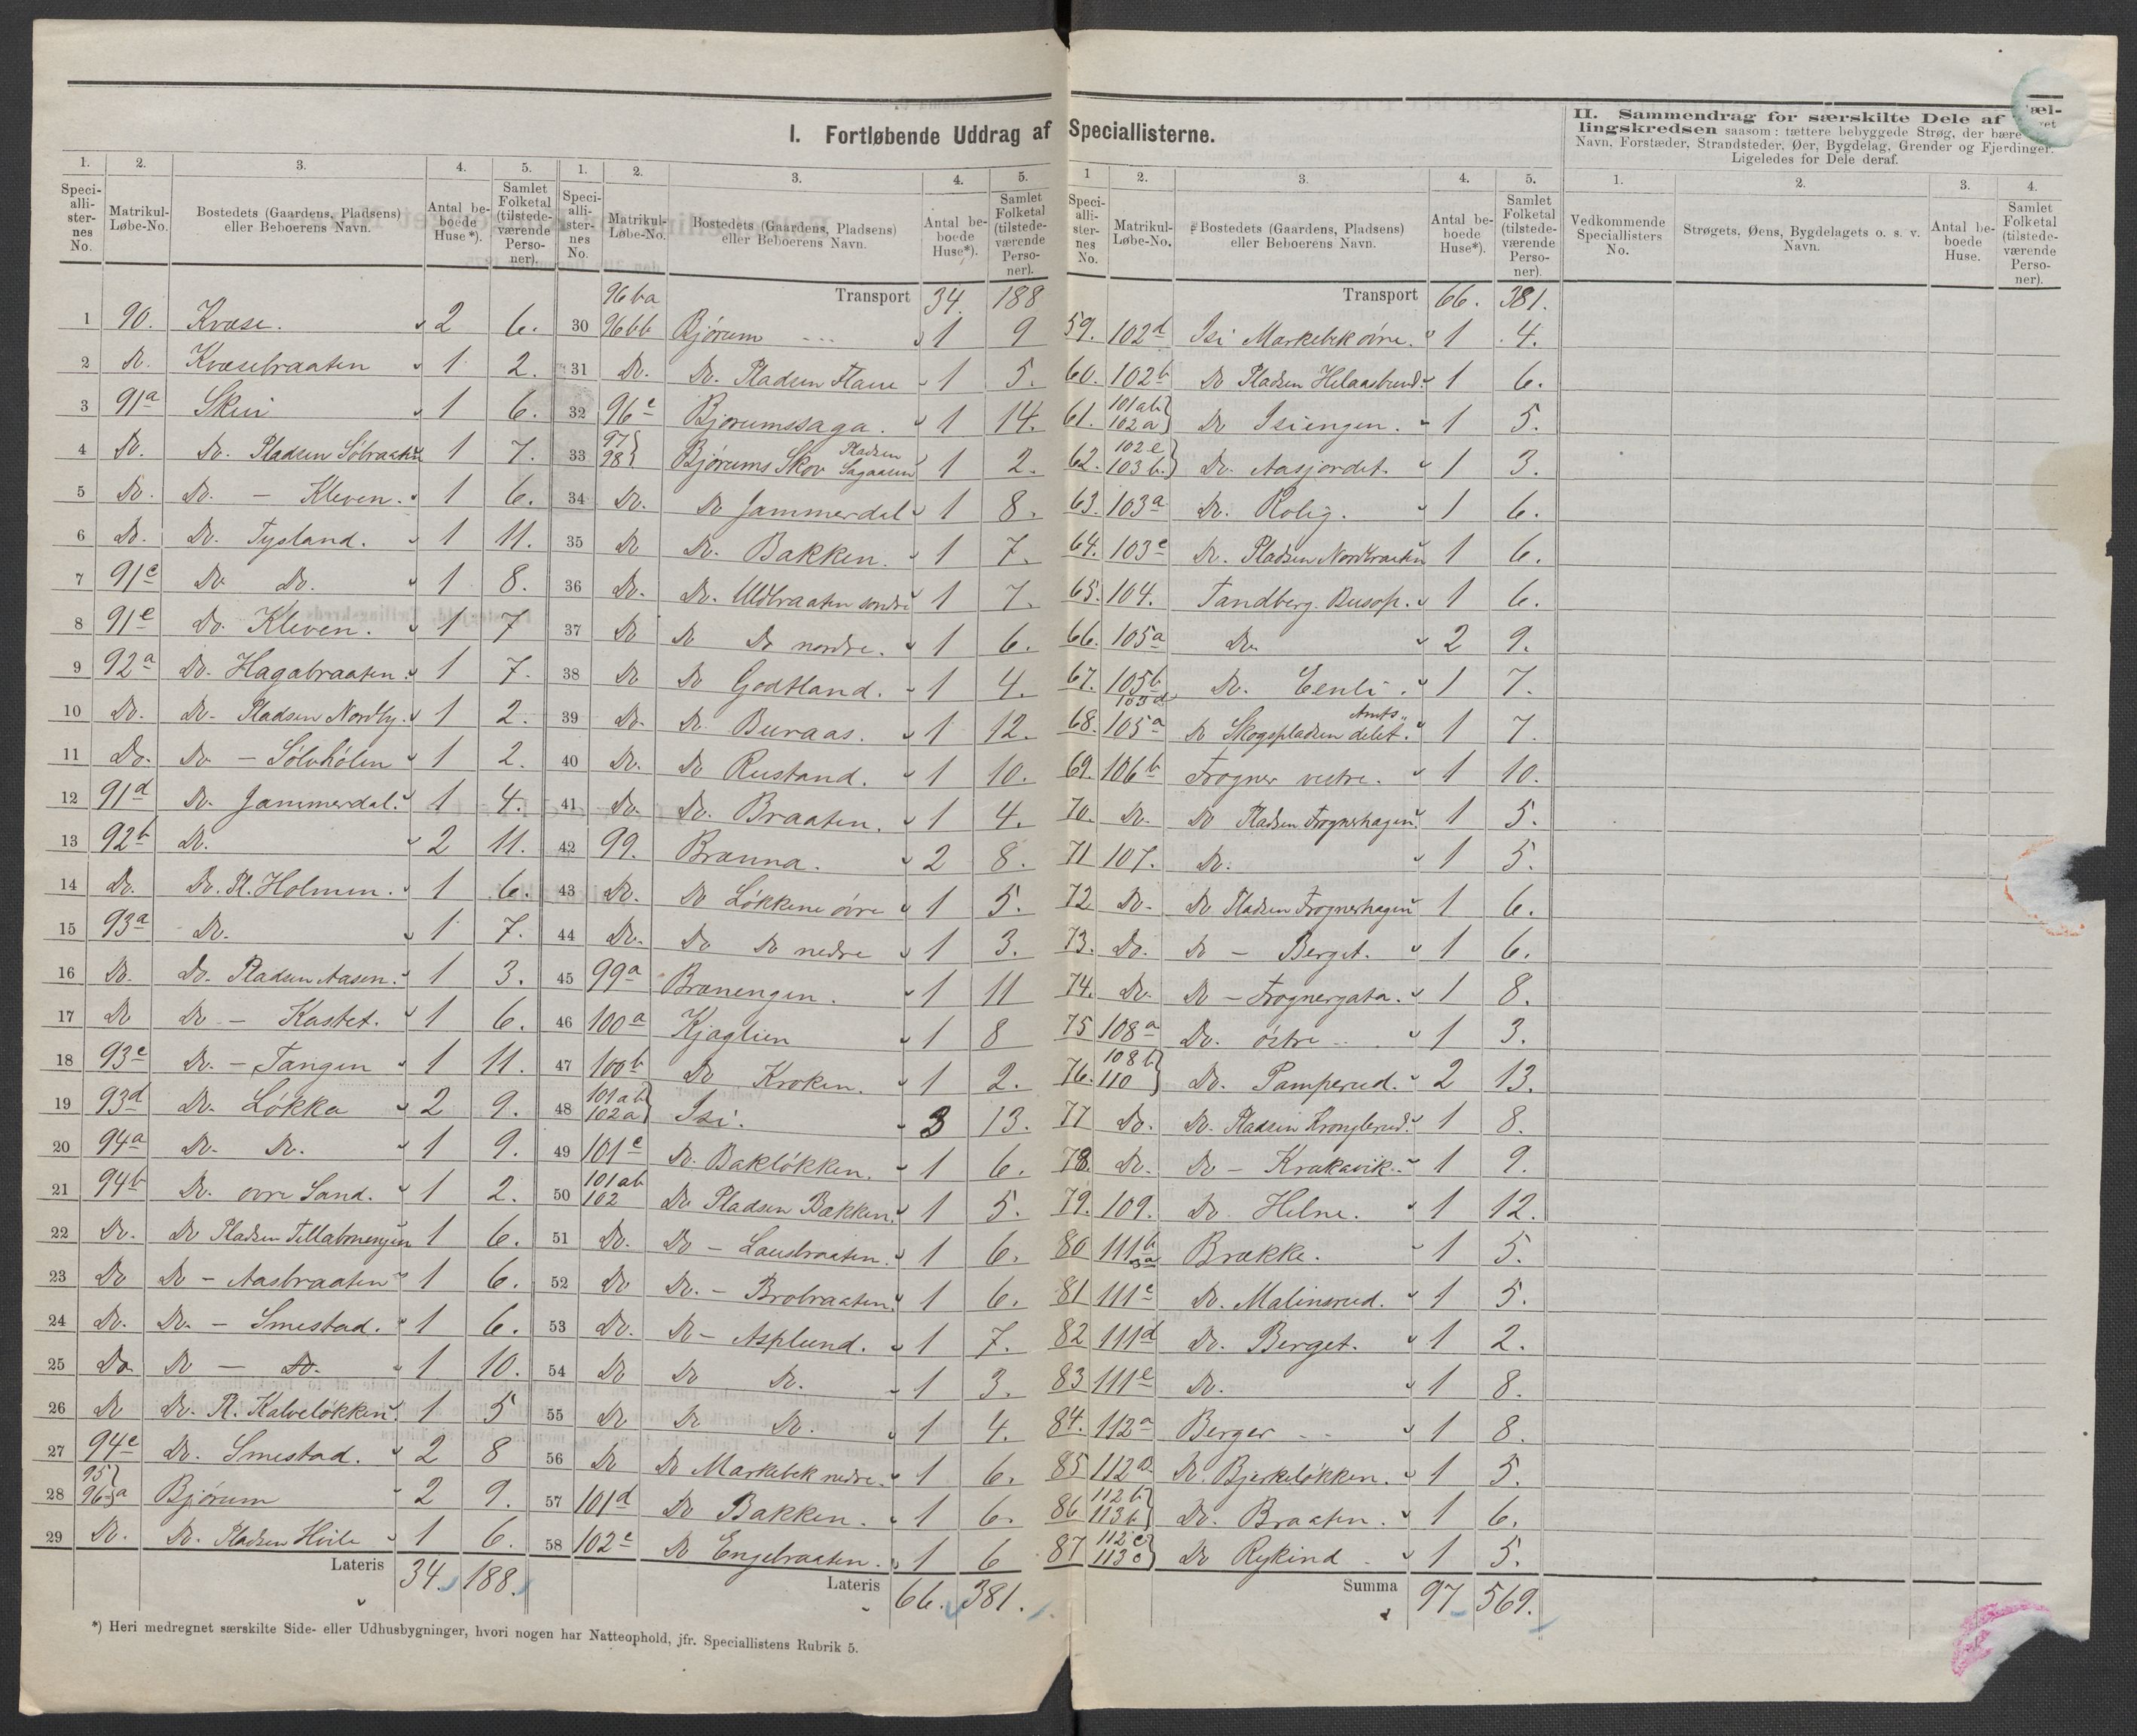 I. Fortløbende Uddrag af Speciallisterne.
1. 2. 3. 4. 5.
Speciallisternes No. Matrikul-Løbe-No. Bostedets (Gaardens, Pladsens) eller Beboerens Navn. Antal beboede Huse*). Samlet Folketal (tilstedeværende Personer).
1 90. Kvæse. 2 6.
2 Do. Kvæsebraaten 1 2.
3 91a Skui 1 6.
4 Do. Do. Pladsen Sölbraaten 1 7.
5 Do. Do. – Kleven. 1 6.
6 Do. Do. Tysland. 1 11.
7 91c Do. Do. 1 8.
8 91e Do. Kleven. 1 7
9 92a Do. Hagabraaten. 1 7.
10 Do. Do. Pladsen Nordby. 1 2.
11 Do. Do – Sölvhölen 1 2.
12 91d Do. Jammerdal. 1 4.
13 92b Do. 2 11.
14 Do. Do. Pl. Holmen. 1 6.
15 93a Do. 1 7.
16 Do. Do. Pladsen Aasen. 1 3.
17 Do Do. – Kastet. 1 6.
18 93c Do. – Tangen 1 11.
19 93d Do. Løkka 2 9.
20 94a Do. Do. 1 9.
21 94b Do. ovre Sand. 1 2.
22 Do. Do Pladsen 1 6.
23 Do Do – Aasbraaten 1 6.
24 Do. Do. – Smestad. 1 6.
25 Do. Do – Do. 1 10.
26 Do Do. Pl. Kalveløkken. 1 5
27 94c Do. Smestad. 2 8
28 95 96a Bjørum 2 9.
29 Do. Do. Pladsen Hvile 1 6.
Lateris 34. 188.
1. 2. 3. 4. 5.
Speciallisternes No. Matrikul-Løbe-No. Bostedets (Gaardens, Pladsens) eller Beboerens Navn. Antal beboede Huse*). Samlet Folketal (tilstedeværende Personer).
Transport 34. 188
30 96ba 96bb Bjørum 1 9
31 Do. Do. Pladsen 1 5.
32 96c Bjorumssaga. 1 14.
33 97 98 Bjørums Skov Pladsen Sagaasen 1 2.
34 Do. Do Jammerdal 1 8.
35 Do Do. Bakken. 1 7.
36 Do. Do. Uldbraaten søndre 1 7.
37 Do Do Do nordre. 1 6.
38 Do Do Godtland. 1 4.
39 Do. Do. Buraas. 1 12.
40 Do. Do Rustand. 1 10.
41 Do. Do. Braaten. 1 4.
42 99. Brænna. 2 8.
43 Do. Do Løkkene øvre 1 5.
44 Do. Do Do nedre 1 3.
45 99a Brænengen. 1 11
46 100a Kjaglien 1 8
47 100b Do Kroken. 1 2.
48 101ab 102a Isi. 3 13.
49 101c Do. Bakløkken. 1 6.
50 101ab 102 Do Pladsen Bakken. 1 5.
51 Do. Do – 1 6.
52 Do Do. – Brobraaten. 1 6.
53 Do. Do – Asplund. 1 7.
54 Do Do Do. 1 3.
55 Do Do Do. 1 4.
56 Do Do Markebek nedre. 1 6.
57 101d Do Bakken. 1 6.
58 102c Do Engebraaten. 1 6
Lateris 66. 381.
1 2. 3. 4. 5.
Speciallisternes No. Matrikul-Løbe-No. Bostedets (Gaardens, Pladsens) eller Beboerens Navn. Antal beboede Huse*). Samlet Folketal (tilstedeværende Personer).
Transport 66. 381.
59. 102d Isi Markebek øvre. 1 4.
60. 102b Do Pladsen 1 6.
61. 101ab 102a Do Isiengen. 1 5.
62. 102e 103b. Do. Aasjordet. 1 3.
63. 103a Do. Rolig. 1 6.
64. 103c Do. Pladsen Nordbraaten 1 6.
65. 104. Tandberg. Busop. 1 6.
66. 105a Do. 2 9.
67. 105b 105d Do. Eenli. 1 7.
68. 105a Do Skogspladsen Amtsdelet. 1 7.
69. 106b Frogner vestre. 1 10.
70. Do. Do Pladsen Frognerhagen. 1 5.
71 107. Do. 1 5.
72 Do. Do Pladsen Frognerhagen 1 6.
73. Do. Do – Berget. 1 6.
74. Do. Do – Frognergata. 1 8.
75 108a Do. østre 1 3.
76. 108b 110 Do. Pamperud. 2 13.
77 Do. Do. Pladsen Kronglerud. 1 8.
78. Do. Do – Krakavik. 1 9.
79. 109. Do Helne. 1 12.
80 111b Brække. 1 5.
81 111c Do. Malinsrud. 1 5.
82 111d Do. Berget. 1 2.
83 111e Do. 1 8.
84. 112a Berger 1 8.
85 112d. Do. Bjerkeløkken. 1 5.
86 112b 113b Do. Braaten. 1 6.
87 112c 113c Do Rykind 1 5.
Summa 97 569.
II. Sammendrag for særskilte Dele af
lingskredsen saasom: tættere bebyggede Strøg, der bære
Navn, Forstæder, Strandsteder, Øer, Bygdelag, Grender og Fjerdinger.
Ligeledes for Dele deraf.
1. 2. 3. 4.
Vedkommende Speciallisters No. Strøgets, Øens, Bygdelagets o. s. v. Navn. Antal beboede Huse. Samlet Folketal (tilstedeværende Personer).
*) Heri medregnet særskilte Side- eller Udhusbygninger, hvori nogen har Natteophold, jfr. Speciallistens Rubrik 5.